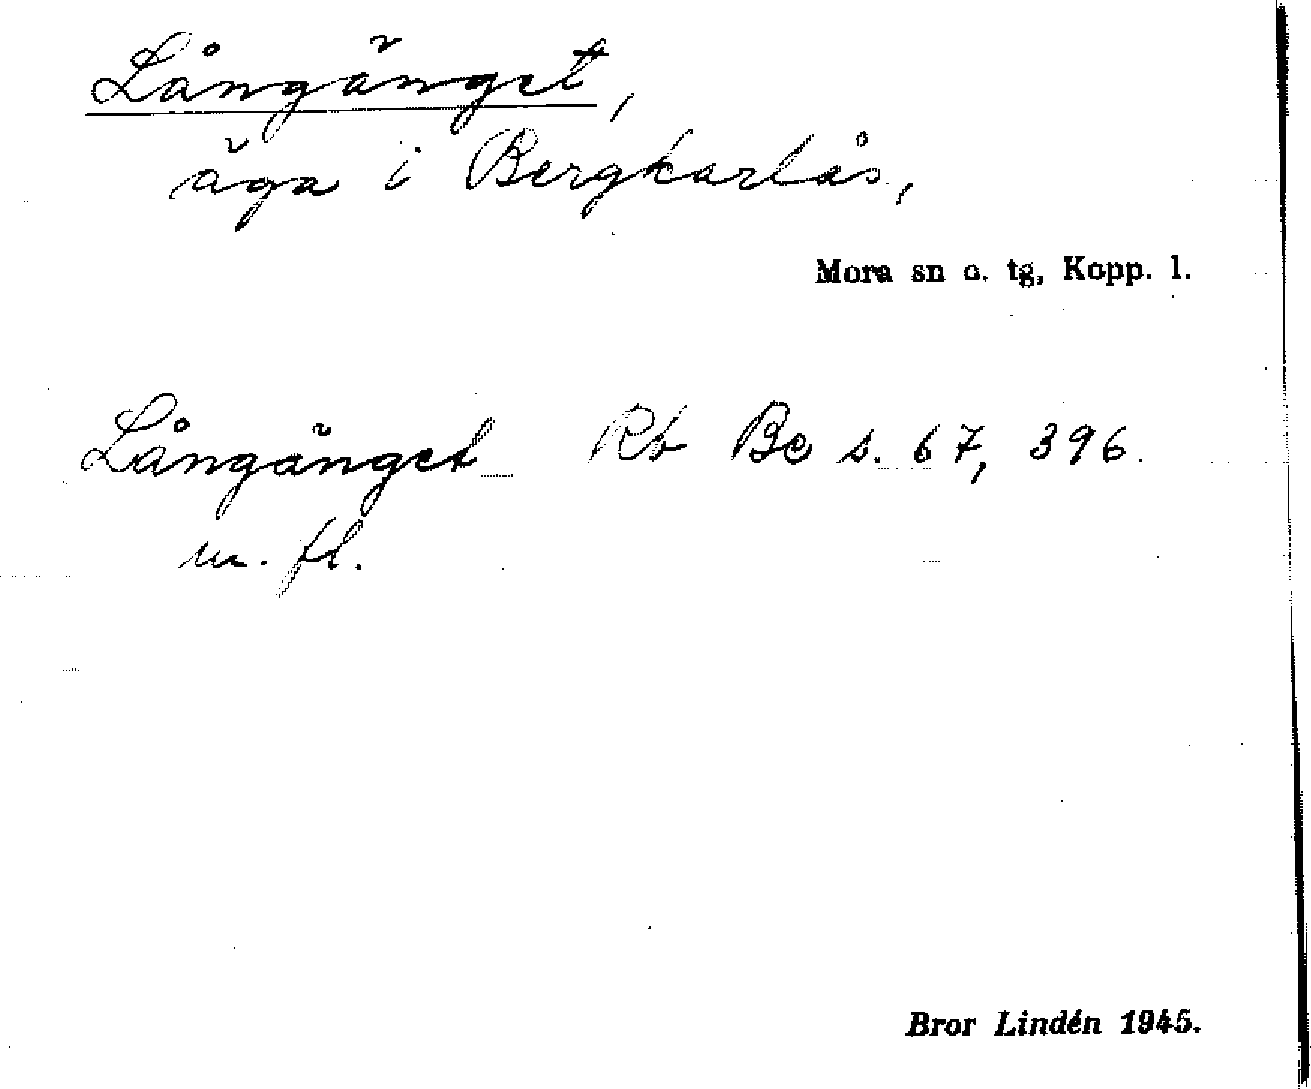 Långänget,
äga i Bergkarlås,
Mora sn o. tg, Kopp. l.
Långänget Rb Be s. 67, 396.
m. fl.
Bror Lindén 1945.